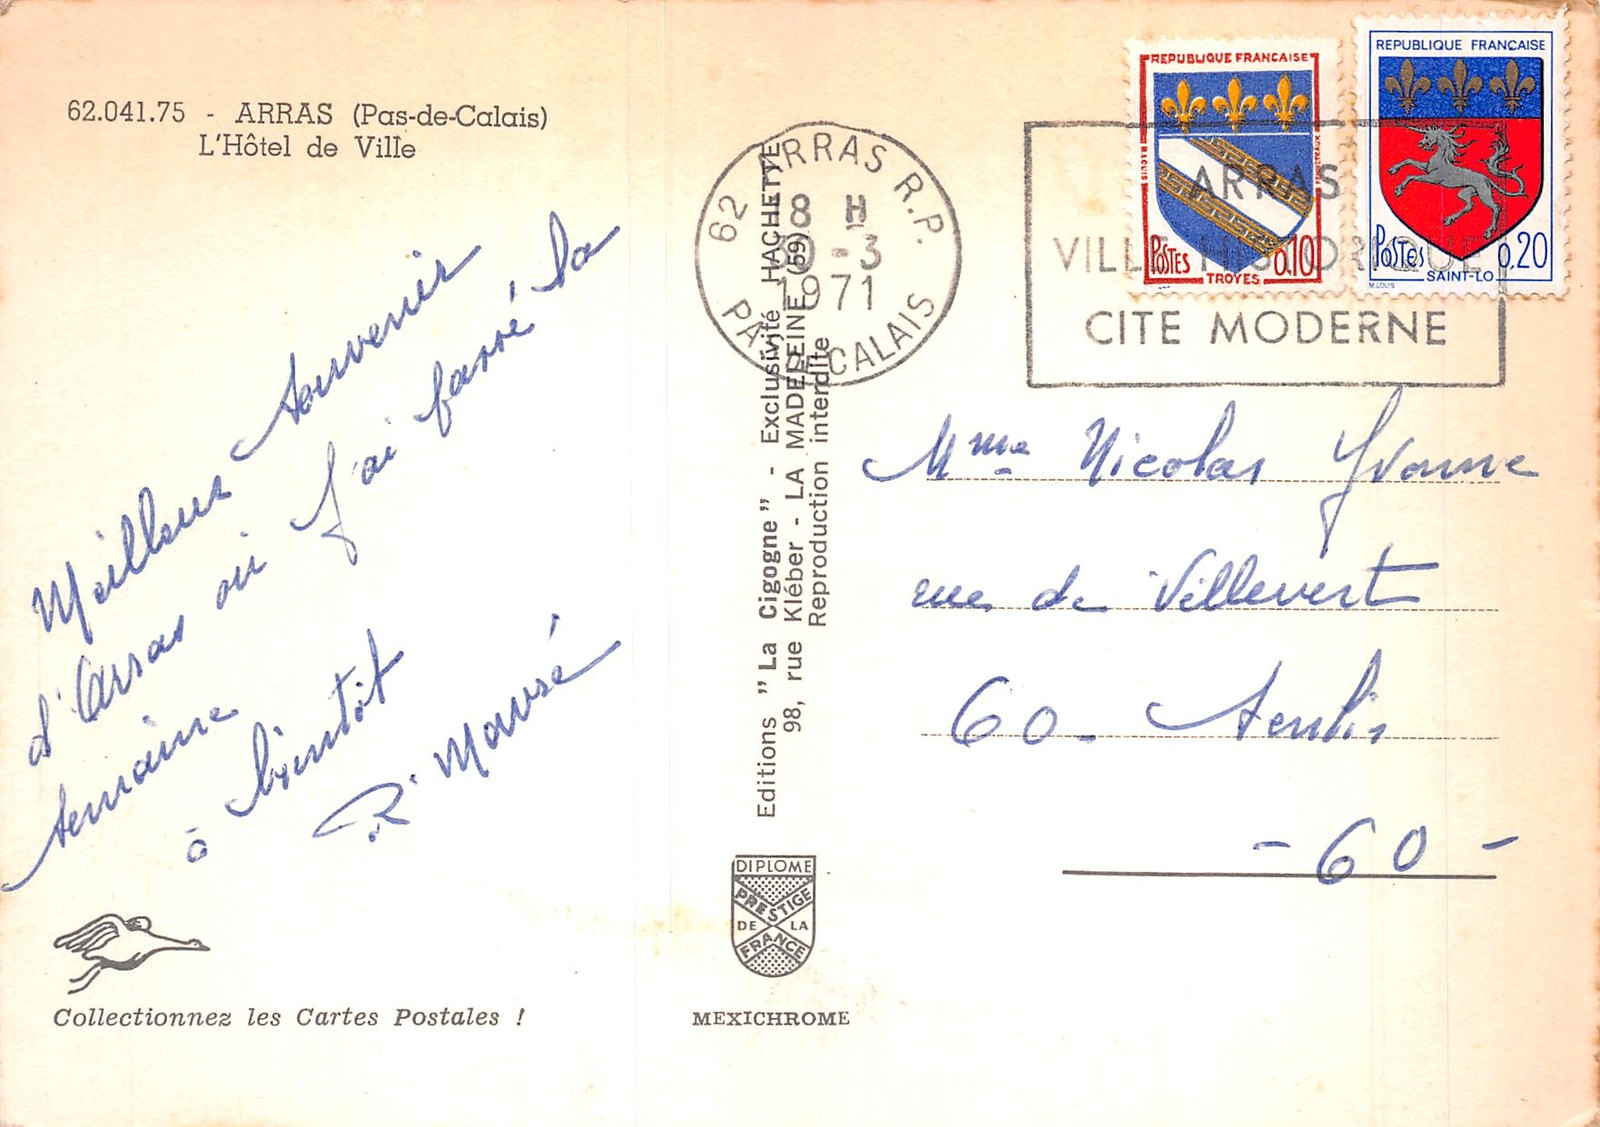 62.041.75 - ARRAS (Pas-de-Calais)
L'Hôtel de Ville
Meilleur souvenir
d'Arras où j'ai passé la
semaine
à bientôt
R. Mansé
Collectionnez les Cartes Postales !
Editions "La Cigogne" - Exclusivité HACHETTE
98, rue Kléber - LA MADELEINE (59)
Reproduction interdite
DIPLOME
PRESTIGE
DE LA
FRANCE
MEXICHROME
62 ARRAS R.P.
18 H
30-3
1971
PAS DE CALAIS
ARRAS
VILLE HISTORIQUE
CITE MODERNE
REPUBLIQUE FRANCAISE
POSTES 0,10
TROYES
REPUBLIQUE FRANCAISE
POSTES 0,20
SAINT-LO
M.LOUIS
Mme Nicolas Yvonne
rue de Villevert
60 - Senlis
- 60 -